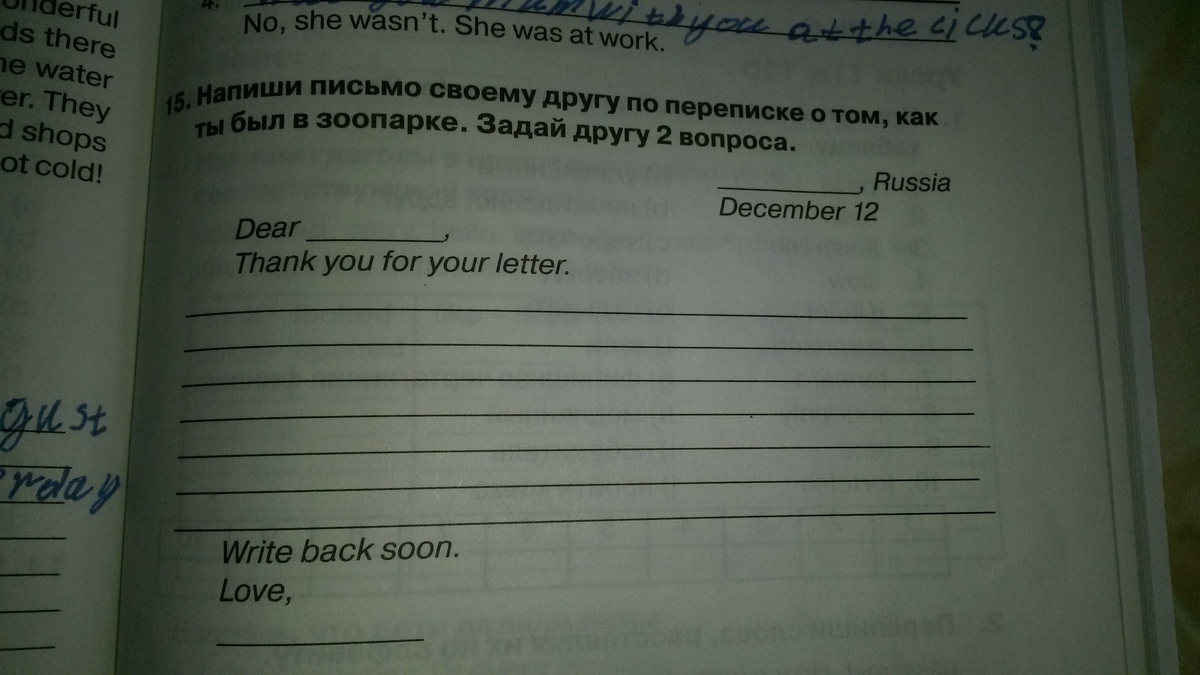 onderful
ds there
ne water
er. They
d shops
ot cold!
gust
rday
4. mum with you at the cicus?
No, she wasn't. She was at work.
15. Напиши письмо своему другу по переписке о том, как
ты был в зоопарке. Задай другу 2 вопроса.
__________, Russia
December 12
Dear __________,
Thank you for your letter.
Write back soon.
Love,